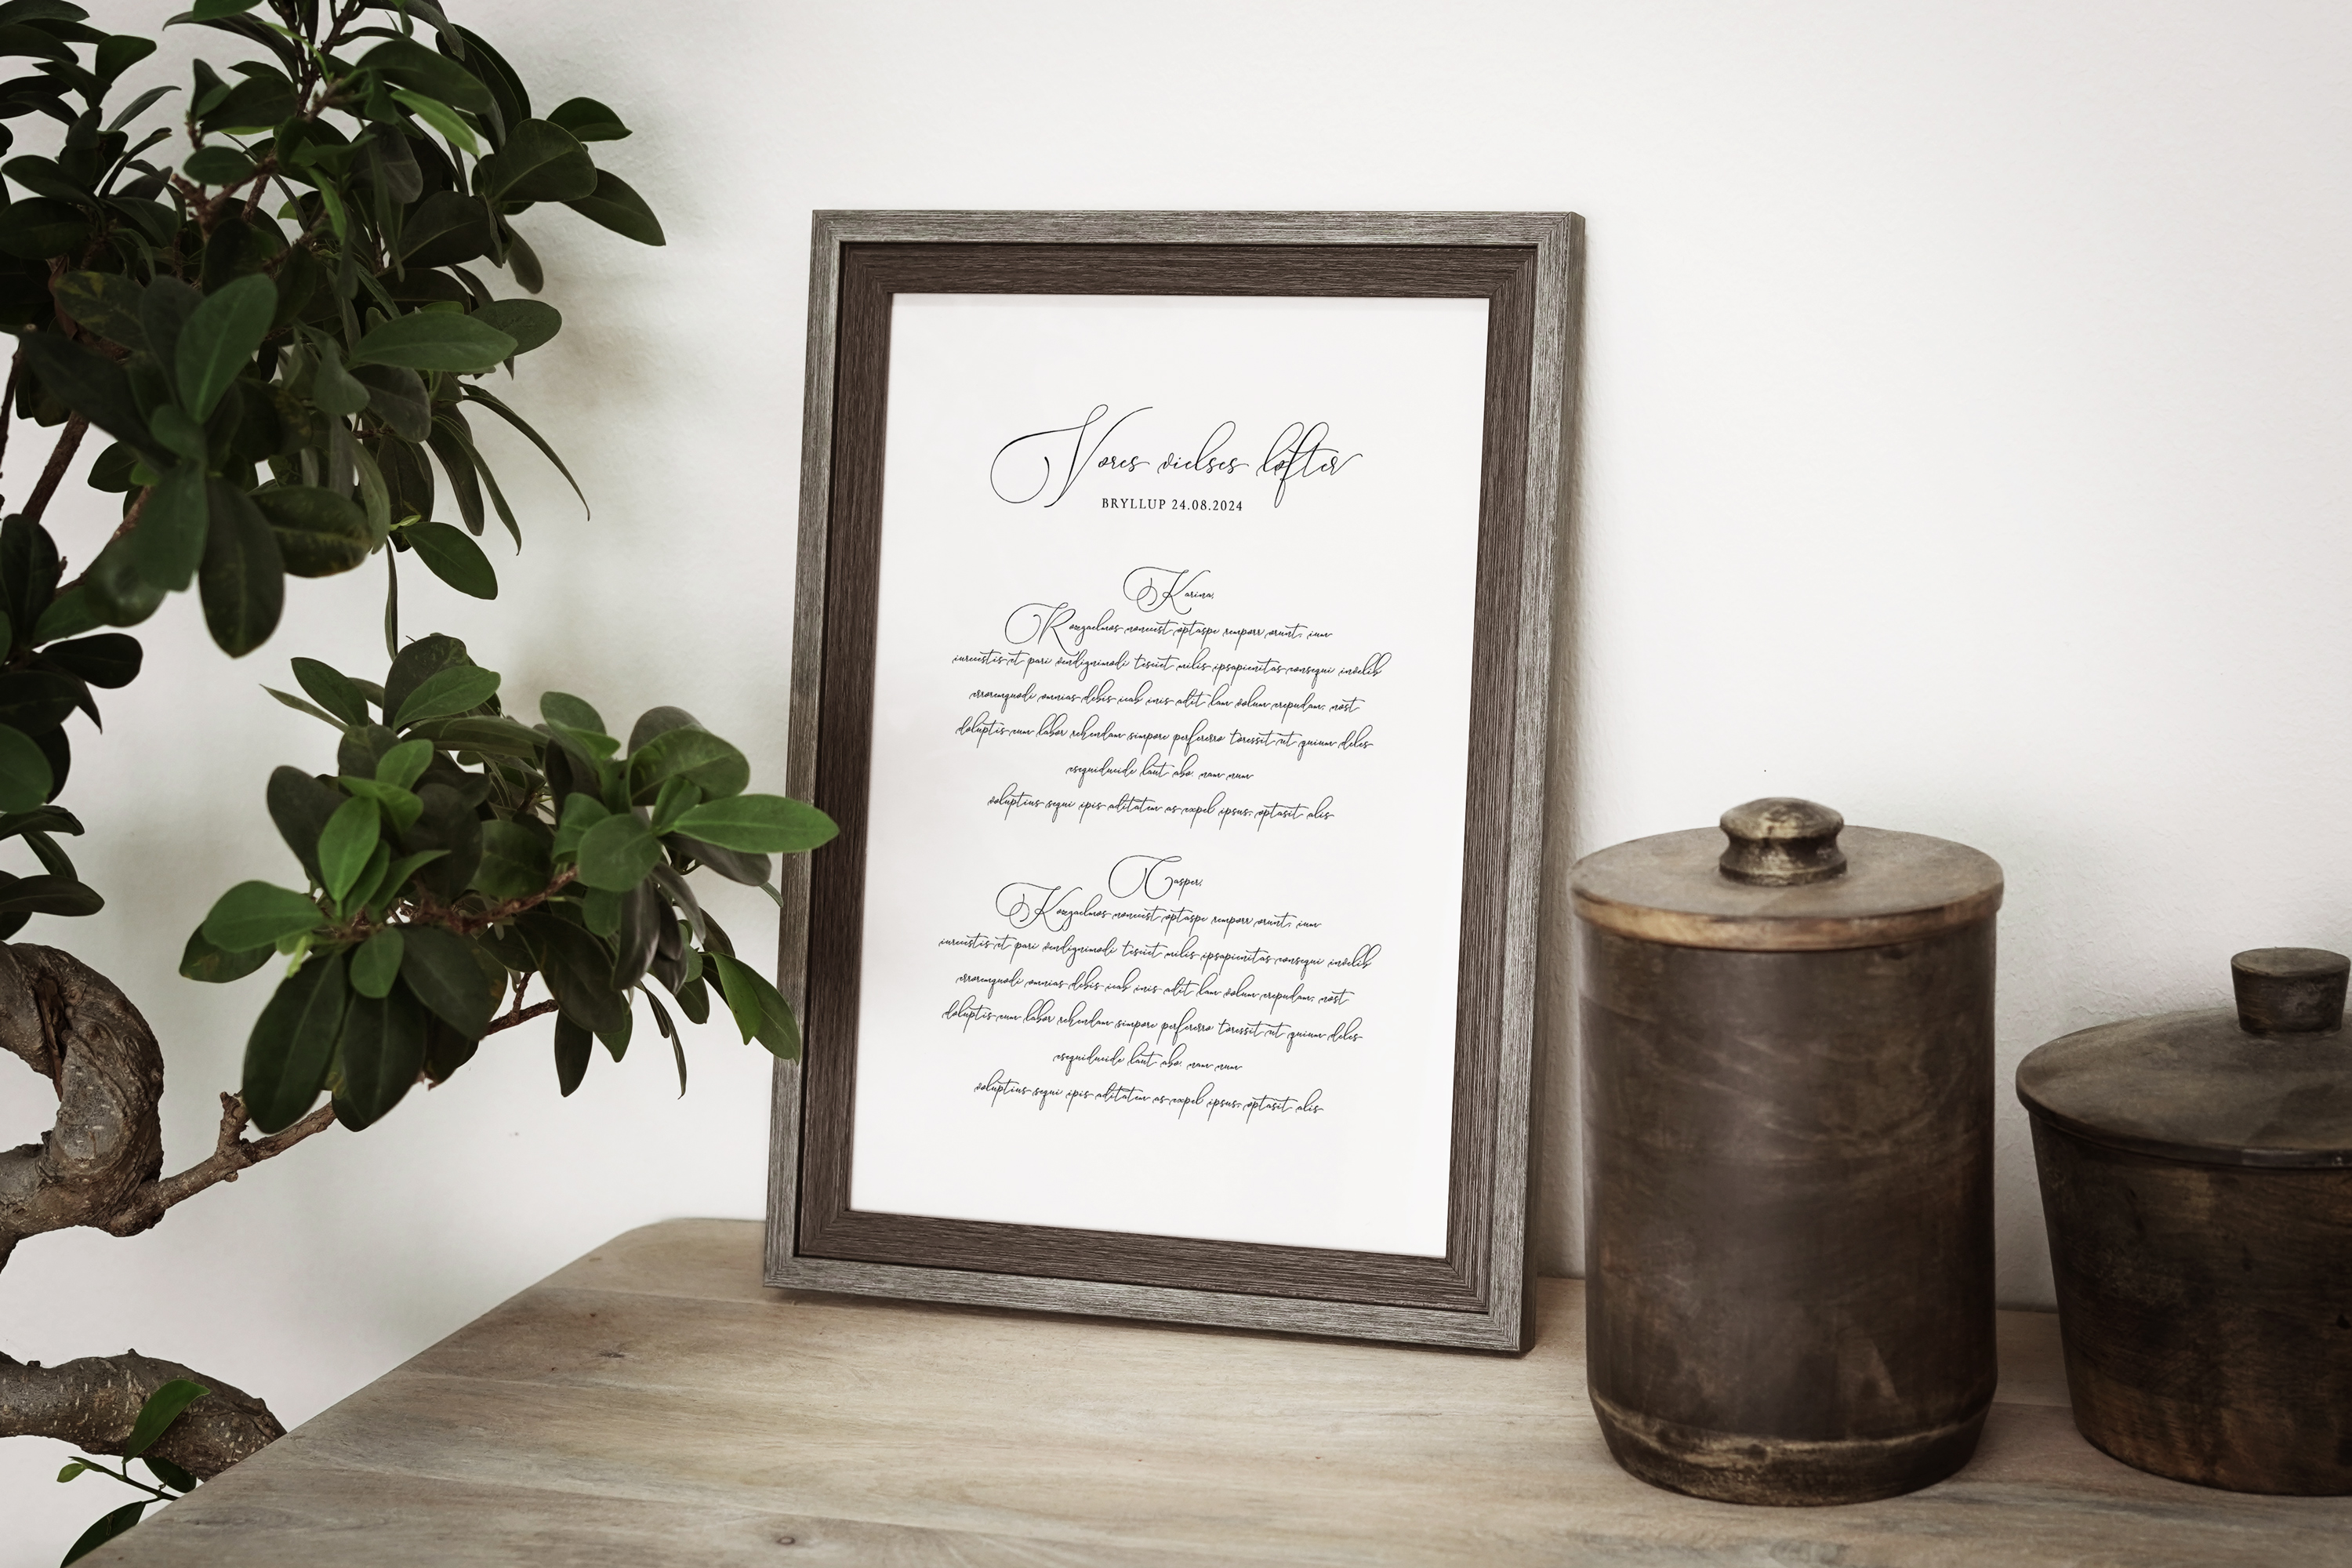 Vores vielses løfter
BRYLLUP 24.08.2024
Karina,
optaspe remporr orunt, ium
iurecestis et pari vendignimodi teseciet milis ipsapienitas consequi invelib
erroremquodi omnias debis icab inis adit lam volum repudam, nost
doluptis eum labor rehendam simpore perferero toressit ut quium deles
esequiducide laut abo. nam num
voluptius sequi ipis aditatem as expel ipsus, optasit alis
Casper,
optaspe remporr orunt, ium
iurecestis et pari vendignimodi teseciet milis ipsapienitas consequi invelib
erroremquodi omnias debis icab inis adit lam volum repudam, nost
doluptis eum labor rehendam simpore perferero toressit ut quium deles
esequiducide laut abo. nam num
voluptius sequi ipis aditatem as expel ipsus, optasit alis